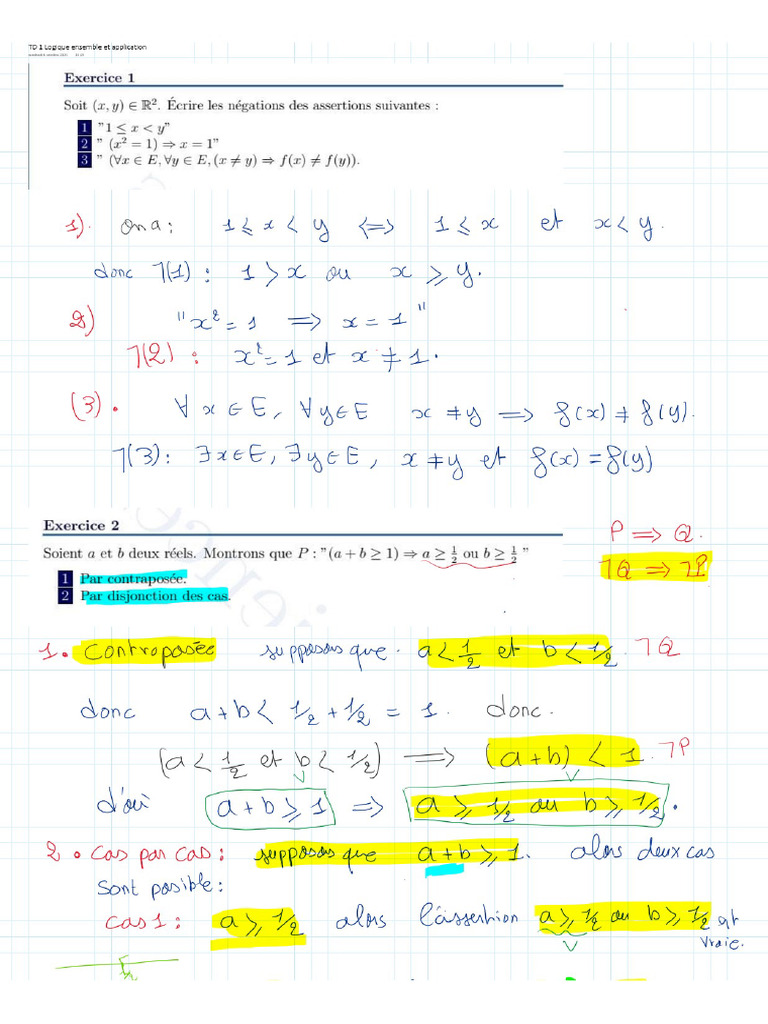 TD 1 Logique ensemble et application
Exercice 1
Soit (x, y) ∈ ℝ². Écrire les négations des assertions suivantes :
1 "1 ≤ x < y"
2 " (x² = 1) ⇒ x = 1"
3 " (∀x ∈ E, ∀y ∈ E, (x ≠ y) ⇒ f(x) ≠ f(y)).
1). on a : 1 ⩽ x < y ⟺ 1 ⩽ x et x < y.
donc ┐(1) : 1 > x ou x ⩾ y.
2) "x² = 1 ⟹ x = 1"
┐(2) : x² = 1 et x ≠ 1.
(3). ∀ x ∈ E, ∀ y ∈ E x ≠ y ⟹ f(x) ≠ f(y).
┐(3) : ∃ x ∈ E, ∃ y ∈ E, x ≠ y et f(x) = f(y)
Exercice 2
P ⟹ Q.
Soient a et b deux réels. Montrons que P : "(a + b ≥ 1) ⇒ a ≥ 1/2 ou b ≥ 1/2 "
┐Q ⟹ ┐P
1 Par contraposée.
2 Par disjonction des cas.
1. Contraposée supposons que a < 1/2 et b < 1/2. ┐Q
donc a + b < 1/2 + 1/2 = 1. donc.
(a < 1/2 et b < 1/2) ⟹ (a + b) < 1. ┐P
d'où a + b ⩾ 1 ⟹ a ⩾ 1/2 ou b ⩾ 1/2.
2. cas par cas : supposons que a + b ⩾ 1. alors deux cas
sont posible :
cas 1 : a ⩾ 1/2 alors l'assertion a ⩾ 1/2 ou b ⩾ 1/2 est
vraie.